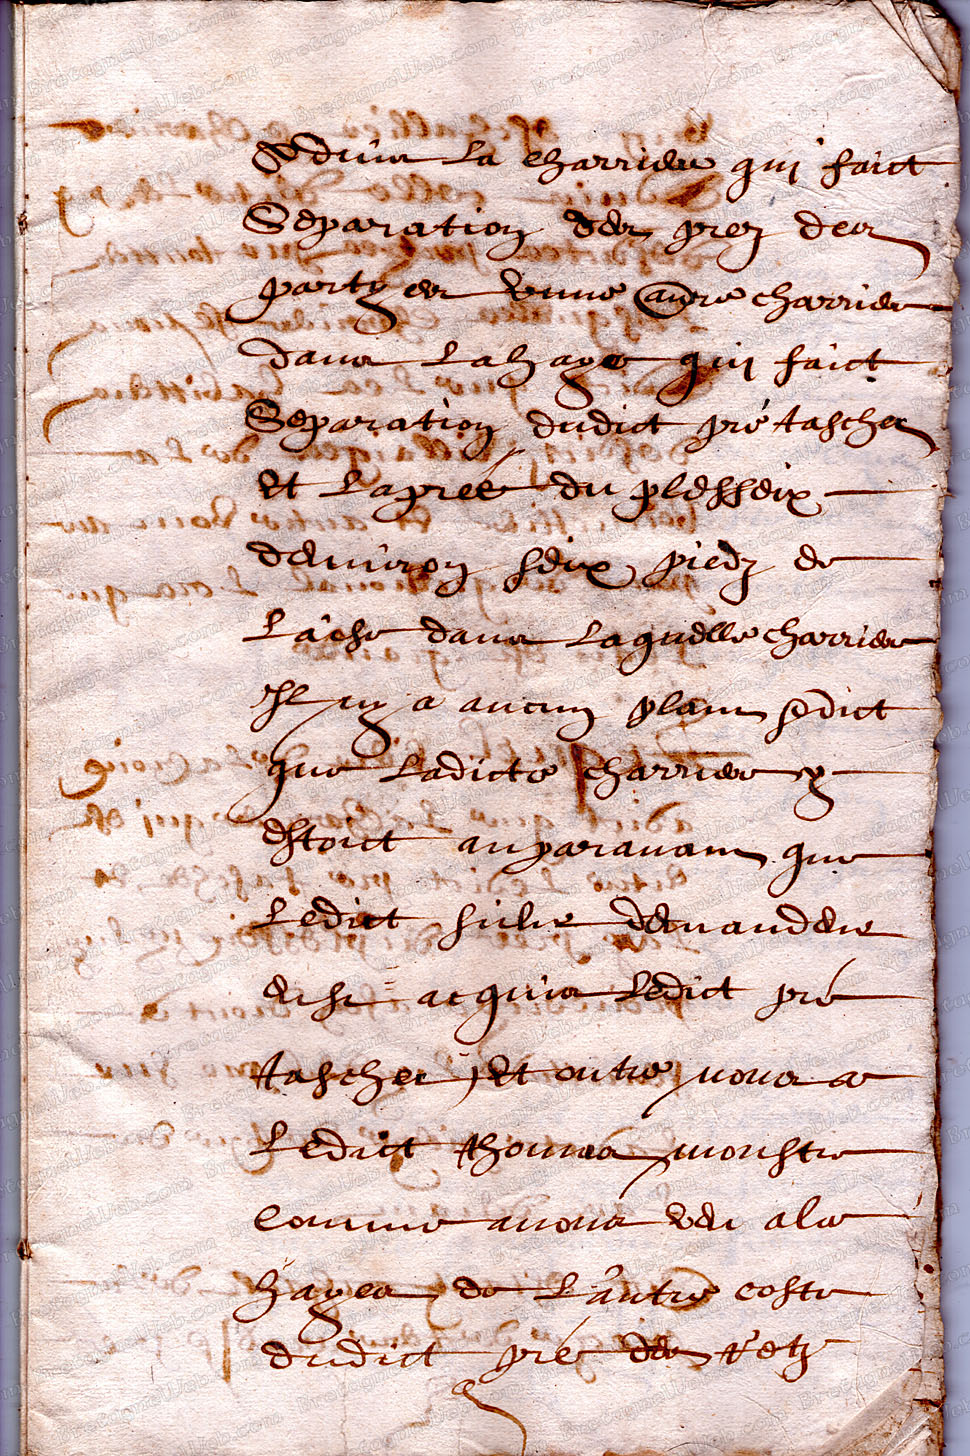 La charriere qui faict
Separation des prez des
partyes et une autre charriere
dans La haye qui faict
Separation dudict pré tascher
Et La prée du plesseix
d'environ seix piedz de
Laise dans Laquelle charriere
Il ny a aucun plant
que Ladicte charriere y
estoict auparavant que
Ledict demandeur
eust acquis Ledict pré
tascher, Et outre nous a
Ledict thomas monstré
comme avons veu a la
hayes de L'autre costé
dudict pré des